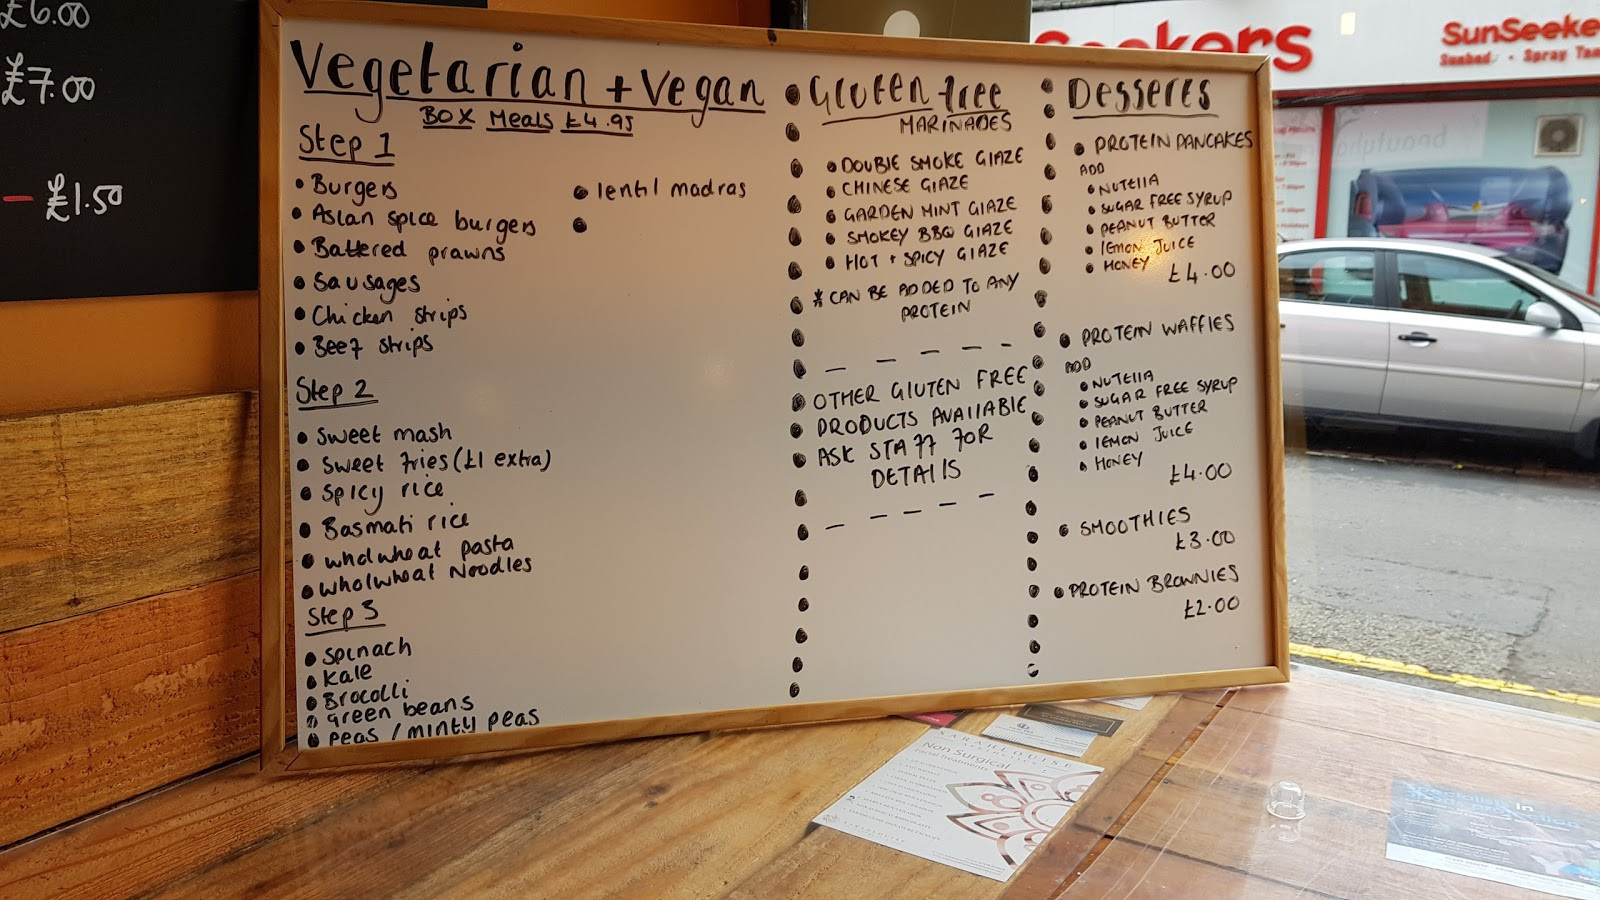 £6.00
£7.00
- £1.50
Vegetarian + Vegan
BOX Meals £4.95
Step 1
• Burgers
• Asian spice burgers
• Battered prawns
• Sausages
• Chicken strips
• Beef strips
• lentil madras
•
Step 2
• Sweet mash
• Sweet fries (£1 extra)
• Spicy rice
• Basmati rice
• wholwheat pasta
• wholwheat Noodles
Step 3
• Spinach
• Kale
• Brocolli
• green beans
• peas / minty peas
Gluten free
MARINADES
• DOUBLE SMOKE GlAZE
• CHINESE GlAZE
• GARDEN MINT GlAZE
• SMOKEY BBQ GlAZE
• HOT + SPICY GlAZE
* CAN BE ADDED TO ANY
PROTEIN
OTHER GlUTEN FREE
PRODUCTS AVAIlABlE
ASK STAFF FOR
DETAIlS
Desserts
• PROTEIN PANCAKES
ADD
• NUTEllA
• SUGAR FREE SYRUP
• PEANUT BUTTER
• lEMON JUICE
• HONEY
£4.00
• PROTEIN WAFFlES
ADD
• NUTEllA
• SUGAR FREE SYRUP
• PEANUT BUTTER
• lEMON JUICE
• HONEY
£4.00
• SMOOTHIES
£3.00
• PROTEIN BROWNIES
£2.00
Seekers
SunSeeke
Sunbed • Spray Tan
SARAH LOUISE
Non Surgical
facial treatments